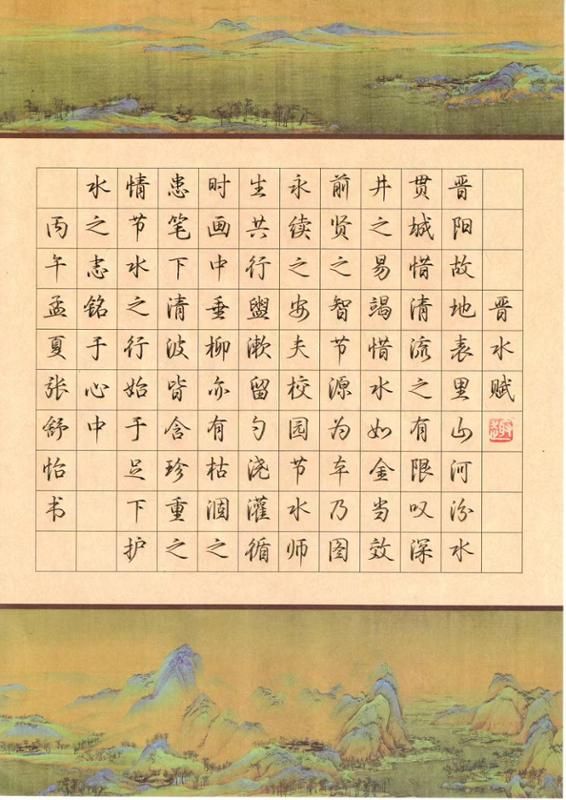 晋水赋
晋阳故地表里山河汾水
贯城惜清流之有限叹深
井之易竭惜水如金当效
前贤之智节源为本乃图
永续之安夫校园节水师
生共行盥漱留勺浇灌循
时画中垂柳亦有枯涸之
患笔下清波皆含珍重之
情节水之行始于足下护
水之志铭于心中
丙午孟夏张舒怡书